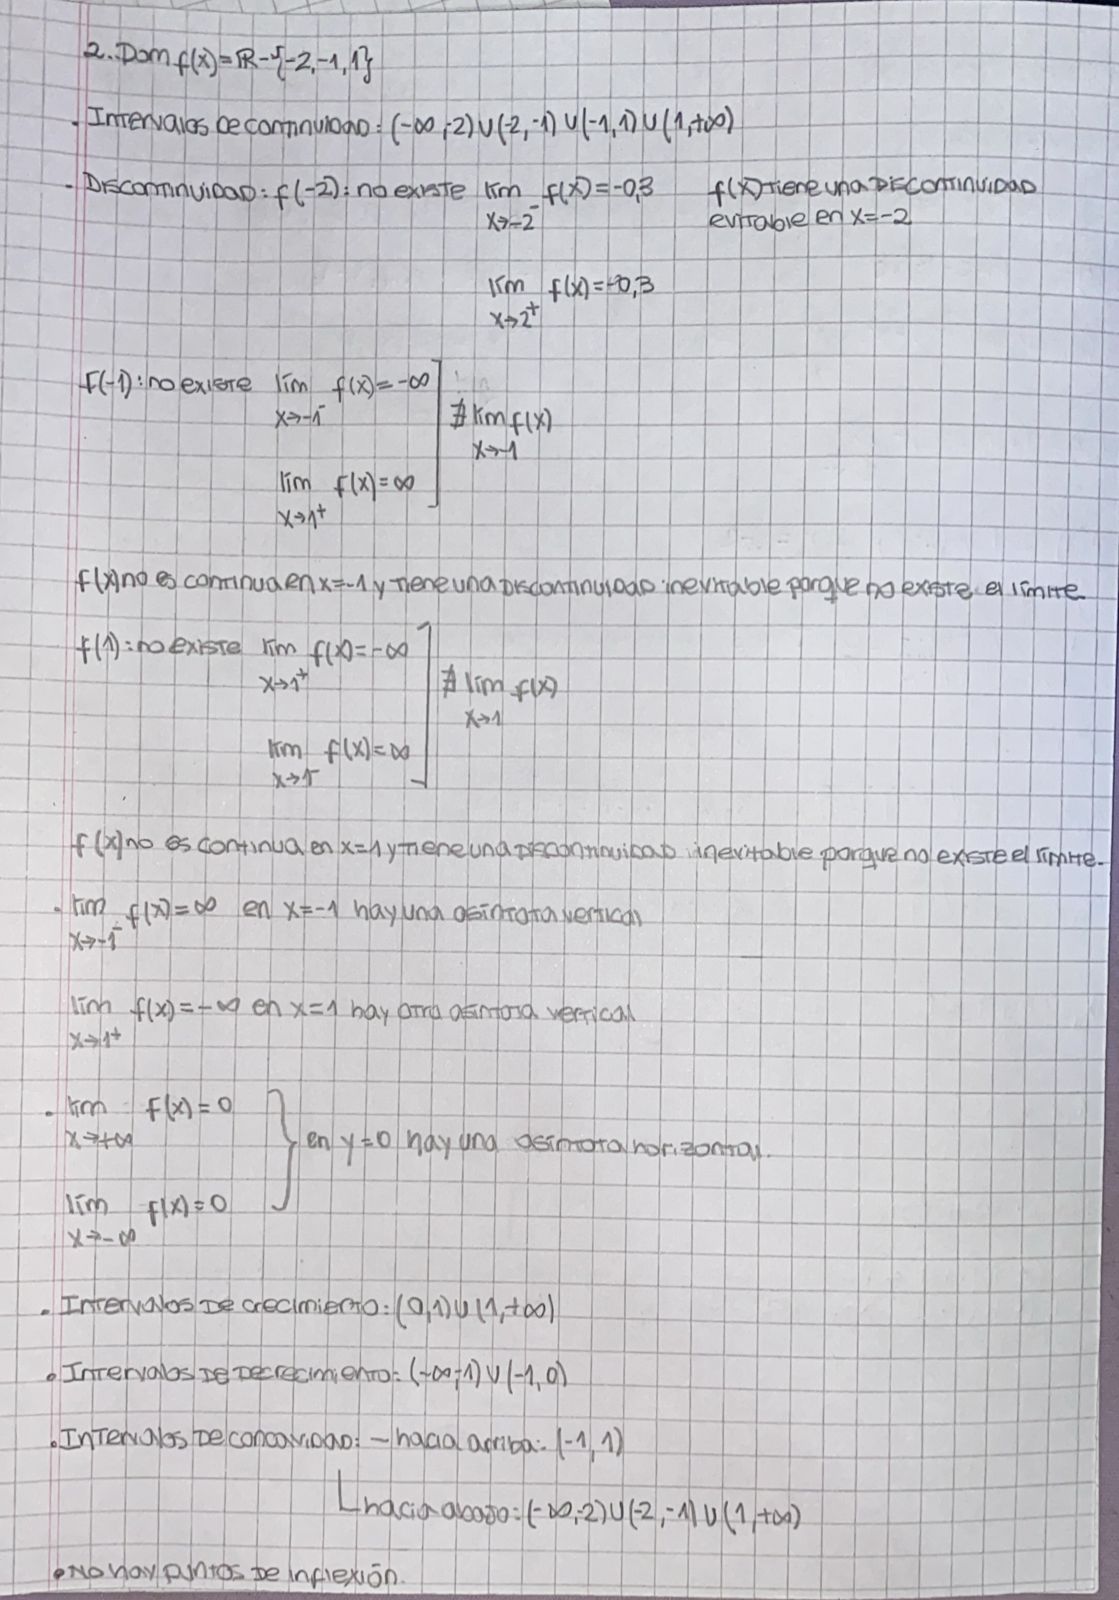 2. Dom f(x) = ℝ - {-2, -1, 1}
· Intervalos de continuidad: (-∞, -2) ∪ (-2, -1) ∪ (-1, 1) ∪ (1, +∞)
- Discontinuidad: f(-2): no existe lim f(x) = -0,3 f(x) tiene una discontinuidad
x→-2⁻ evitable en x=-2
lim f(x) = -0,3
x→2⁺
f(-1): no existe lim f(x) = -∞
x→-1⁻ ∄ lim f(x)
x→-1
lim f(x) = ∞
x→1⁺
f(x) no es continua en x=-1 y tiene una discontinuidad inevitable porque no existe el límite
f(1): no existe lim f(x) = -∞
x→1⁺ ∄ lim f(x)
x→1
lim f(x) = ∞
x→1⁻
f(x) no es continua en x=1 y tiene una discontinuidad inevitable porque no existe el límite.
· lim f(x) = ∞ en x=-1 hay una asíntota vertical
x→-1⁻
lim f(x) = -∞ en x=1 hay otra asíntota vertical
x→1⁺
· lim f(x) = 0
x→+∞ en y=0 hay una asíntota horizontal.
lim f(x) = 0
x→-∞
· Intervalos de crecimiento: (0,1) ∪ (1, +∞)
· Intervalos de decrecimiento: (-∞,-1) ∪ (-1, 0)
· Intervalos de concavidad: - hacia arriba: (-1, 1)
hacia abajo: (-∞, -2) ∪ (-2, -1) ∪ (1, +∞)
· No hay puntos de inflexión.